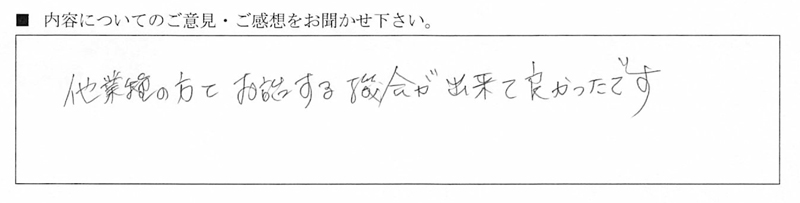 ■ 内容についてのご意見・ご感想をお聞かせ下さい。
他業種の方とお話する機会が出来て良かったです